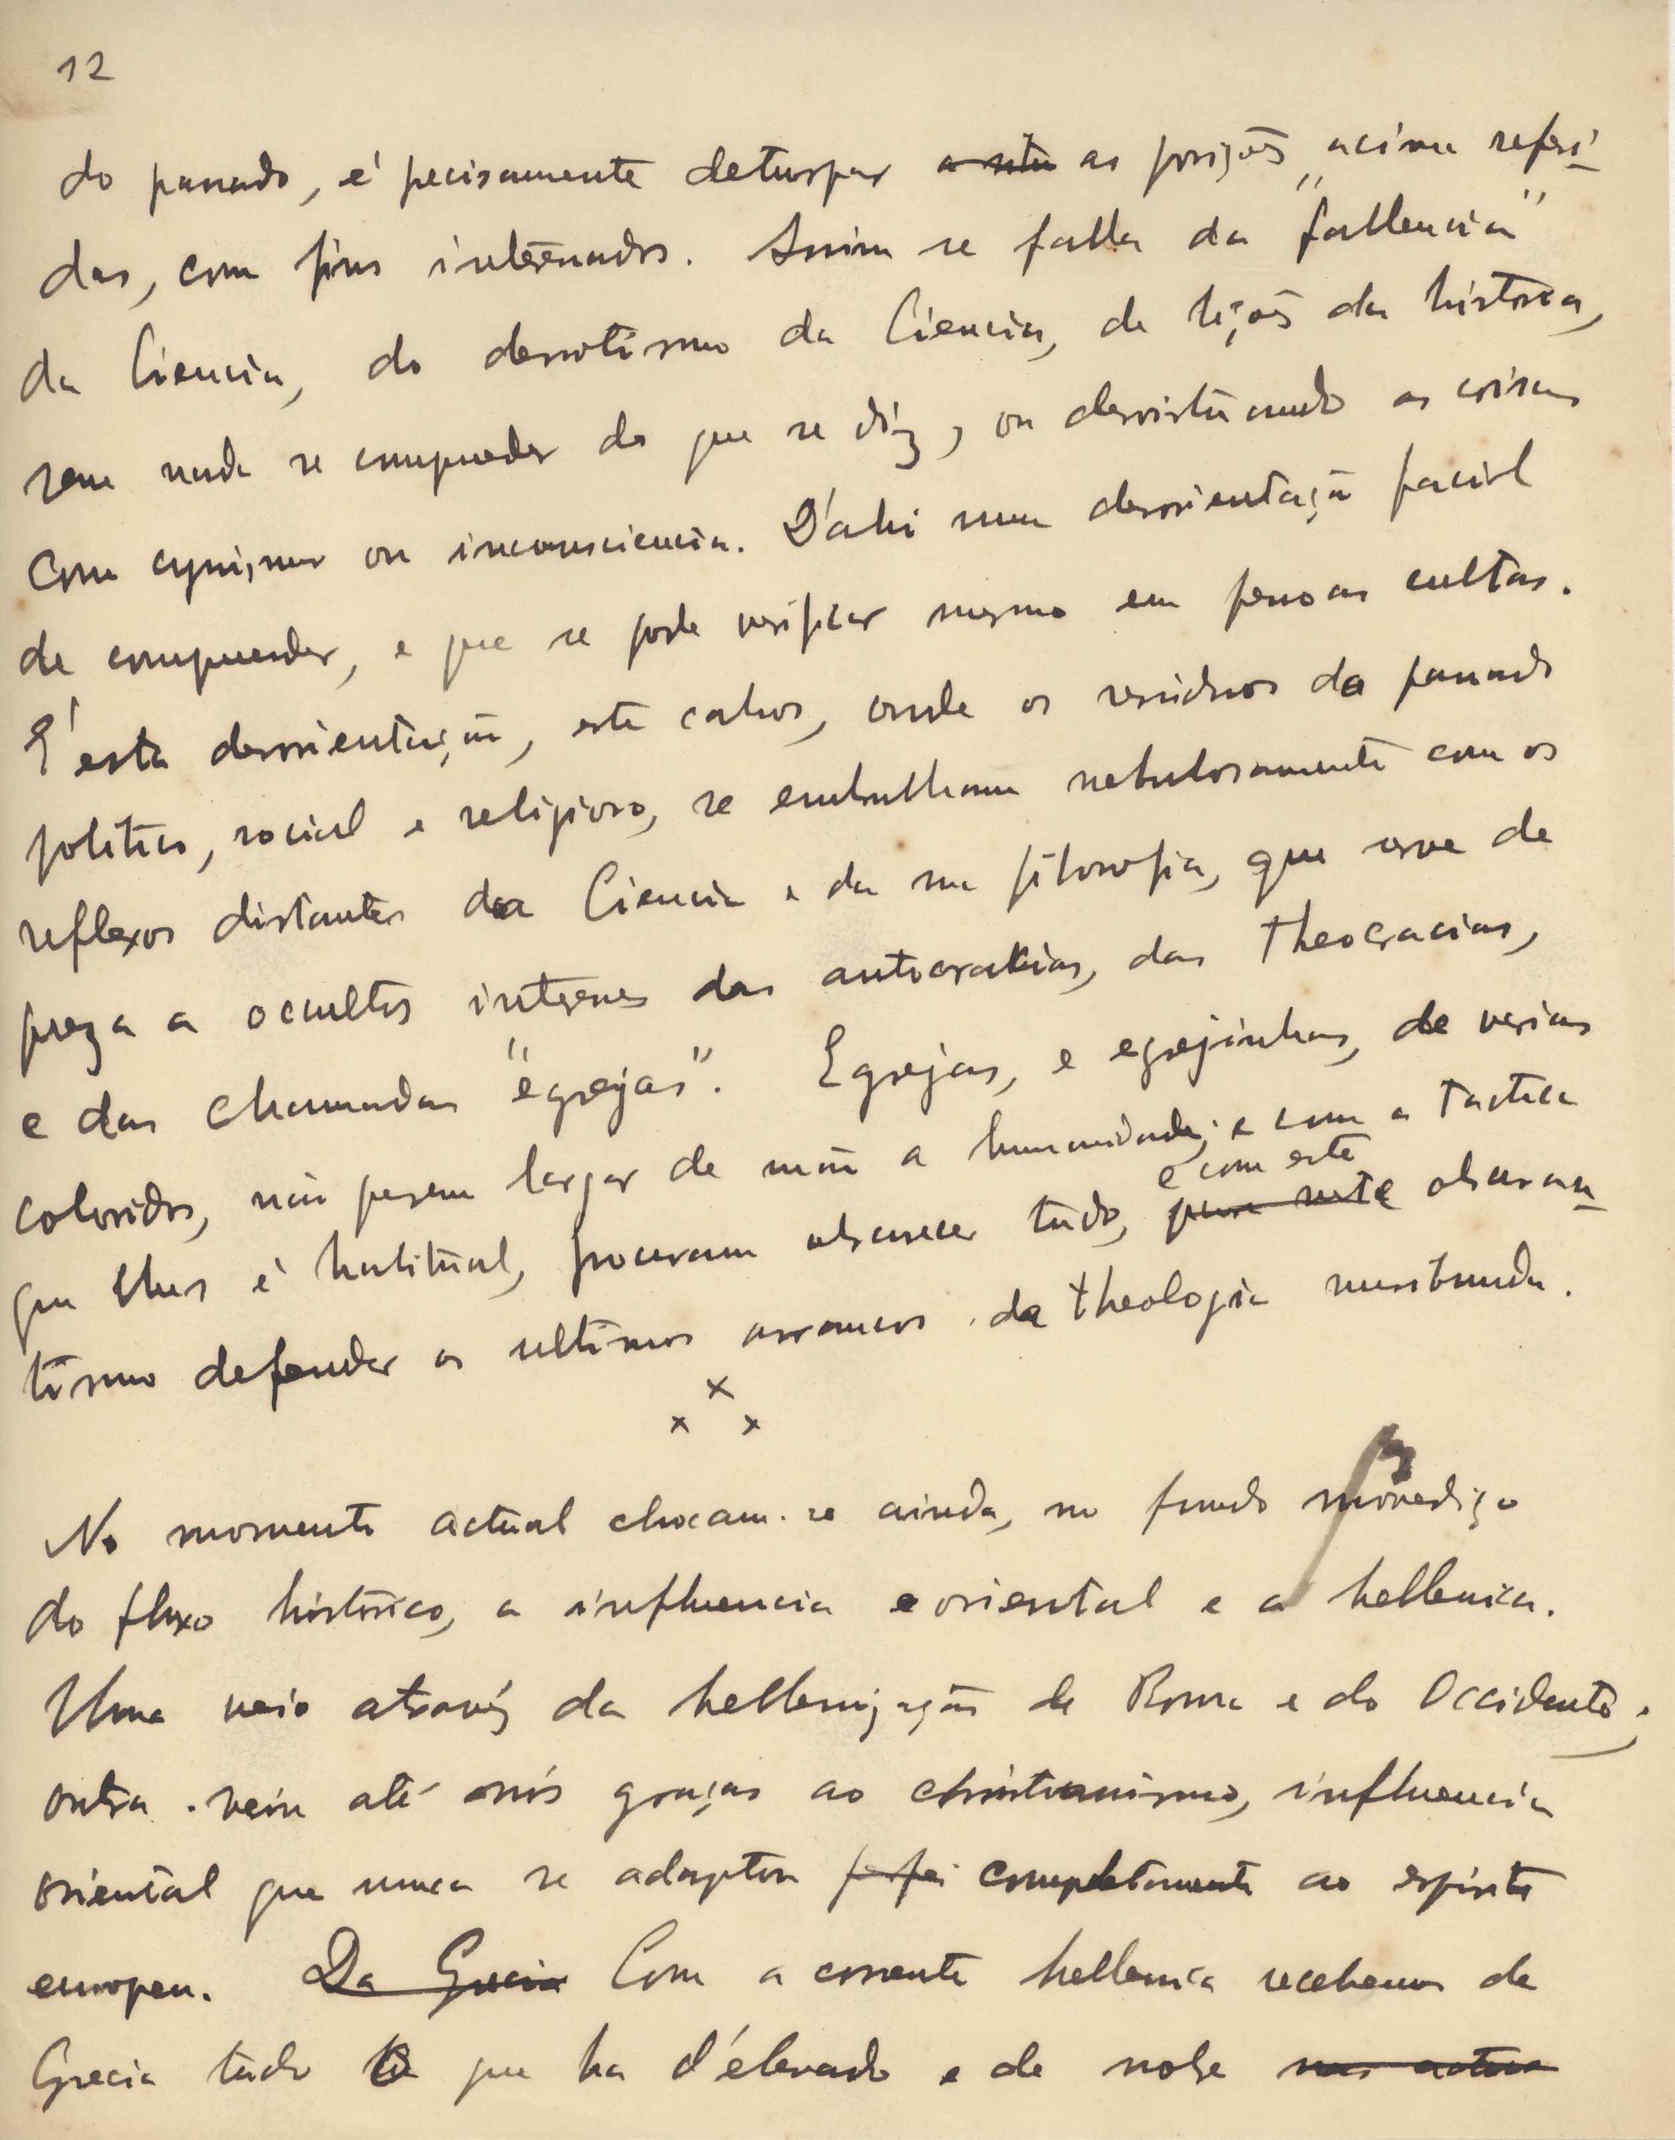 12
do passado, é precisamente deturpar as posições acima referi-
das, com fins interessados. Assim se falla da "fallencia"
da Ciencia, do derrotismo da Ciencia, de lições da historia,
sem nada se comprehender do que se diz, ou desvirtuando as coisas
com cynismo ou inconsciencia. D'ahi uma desorientação facil
de comprehender, e que se pode verificar mesmo em pessoas cultas.
E' esta desorientação, este cahos, onde os residuos do passado
politico, social e religioso, se embrulham nebulosamente com os
reflexos distantes da Ciencia e da sua filosofia, que serve de
preza a occultos interesses das autocracias, das theocracias,
e das chamadas "egrejas". Egrejas, e egrejinhas, de varios
coloridos, não querem largar de mão a humanidade; e com a tactica
que lhes é habitual, procuram obscurecer tudo, e com este obscuran-
tismo defender os ultimos arrancos da theologia moribunda.
x x x
No momento actual chocam-se ainda, no fundo movediço
do fluxo historico, a influencia oriental e a hellenica.
Uma veio atravéz da hellenização de Roma e do Occidente;
outra veiu até nós graças ao christianismo, influencia
oriental que nunca se adaptou completamente ao espirito
europeu. Da Grecia Com a corrente hellenica recebemos da
Grecia tudo o que ha d'élevado e de nobre